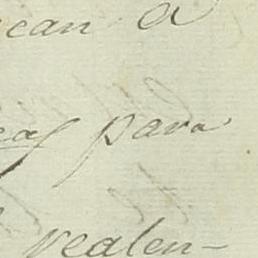 can a
eas para
realen-